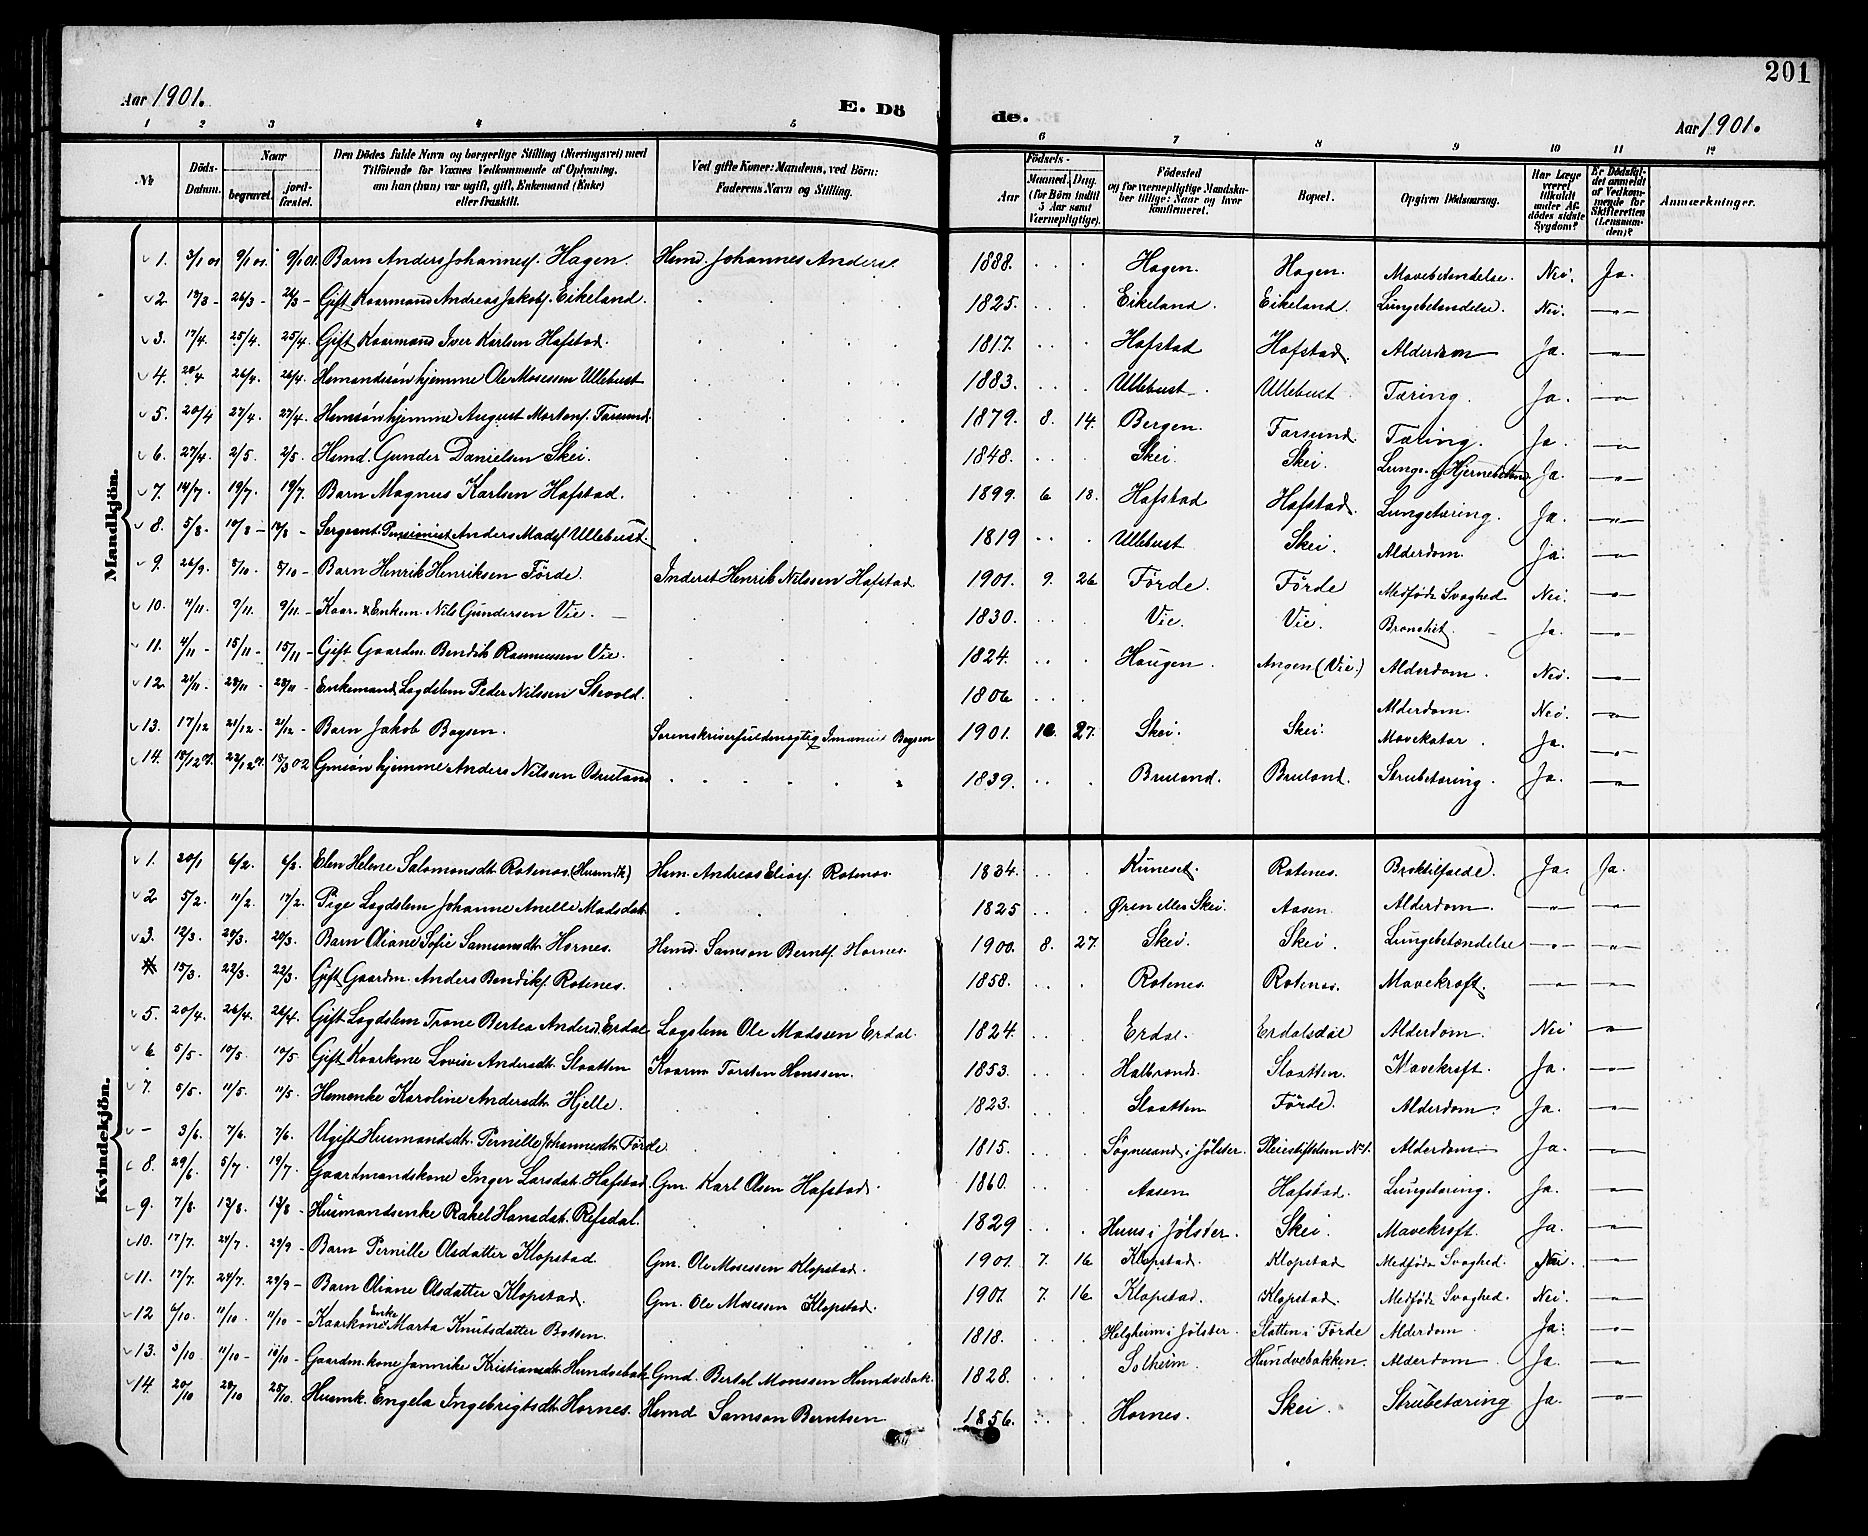 201
Aar 1901.
E. Döde.
Aar 1901.
1 2 3 4 5 6 7 8 9 10 11 12
№
Döds-Datum.
Naar
begravet.
jordfæstet.
Den Dödes fulde Navn og borgerlige Stilling (Næringsvei) med Tilföiende for Voxnes Vedkommende af Oplysning, om han (hun) var ugift, gift, Enkemand (Enke) eller fraskilt.
Ved gifte Koner: Mandens, ved Börn: Faderens Navn og Stilling.
Födsels-
Aar
Maaned. Dag.
(for Börn indtil 5 Aar samt Værnepligtige).
Födested og for værnepligtige Mandskaber tillige: Naar og hvor konfirmeret.
Bopæl.
Opgiven Dödsaarsag.
Har Læge været tilkaldt under Afdödes sidste Sygdom?
Er Dödsfaldet anmeldt af Vedkommende for Skifteretten (Lensmanden)?
Anmærkninger.
Mandkjön.
1. 3/1 01 9/1 01. 9/1 01. Barn Anders Johannesf. Hagen. Hsmd. Johannes Anders. 1888. Hagen. Hagen. Mavebetændelse. Nei. Ja.
2. 19/3 - 26/3 - 26/3 - Gift Kaarmand Andreas Jakobs. Eikeland. 1825. Eikeland. Eikeland. Lungebetændelse. Nei. —"—
3. 17/4. 25/4. 25/4. Gift Kaarmand Iver Karlsen Hafstad. 1817. Hafstad Hafstad. Alderdom Ja. —"—
4. 20/4 26/4. 26/4. Hsmandssön hjemme Ole Mosessen Ullebust 1883. Ullebust. Ullebust Tæring. Ja. —"—
5. 20/4 27/4. 27/4. Hsmsön hjemme August Mortens. Farsund. 1879. 8. 14. Bergen. Farsund. Tæring. Ja. —"—
6. 27/4 2/5. 2/5. Hsmd. Gunder Danielsen Skei. 1848. Skei. Skei. Lunge- og Hjernebetænd. Ja. —"—
7. 14/7. 19/7. 19/7. Barn Magnus Karlsen Hafstad. 1899. 6 18. Hafstad Hafstad. Lungetæring. Ja. —"—
8. 5/8. 10/8 - 10/8 - Sergeant Pensionist Anders Mads. Ullebust. 1819 Ullebust Skei. Alderdom. Ja. —"—
9. 26/9. 8/10 - 8/10 - Barn Henrik Henriksen Förde. Inderst Henrik Nilssen Hafstad 1901. 9. 26 Förde. Förde Medfødt Svaghed. Nei. —"—
10. 4/11. 9/11. 9/11. - Kaar & Enkem. Nils Gundersen Vie. 1830. Vie. Vie. Bronchit. Ja. —"—
11. 4/11 - 15/11 - 15/11 - Gift Gaardm. Bendik Rasmussen Vie. 1824. Haugen. Angen (Vie.) Alderdom. Nei. —"—
12. 21/11. 28/11 - 28/11 - Enkemand Lægdslem Peder Nilssen 1806 Alderdom. Nei. —"—
13. 17/12 21/12 - 21/12 - Barn Jakob Boysen. Sorenskriverfuldmægtig Imanuel Boysen 1901. 10. 27. Skei. Skei. Mavekatar. Ja. —"—
14. 18/12 01. 22/12 01. 18/3 02 Gmsön hjemme Anders Nilssen Bruland 1839. Bruland. Bruland. Strubetæring. Ja. —"—
Kvindekjön.
1. 30/1 6/2. 6/2. Elen Helene Salomonsdt. Rotenes. (Husmdk.) Hsm. Andreas Eliasf. Rotenes. 1834. Kuneset. Rotenes. Broktilfælde. Ja. Ja.
2 5/2. 11/2. 17/2. Pige Lægdslem Johanne Anelle Madsdat. 1825 Øren eller Skei. Aasen. Alderdom. —"— —"—
3. 12/3. 20/3. 20/3. Barn Oliane Sofie Samsonsdt. Hornes. Hsmd. Samson Berntf. Hornes. 1900. 8. 27. Skei. Skei. Lungebetændelse —"— —"—
15/3. 22/3. 22/3. Gift Gaardm. Anders Bendiks. Rotenes. 1858. Rotenes. Rotenes. Mavekræft. —"— —"—
5. 20/4. 26/4. 26/4. Gift Lægdslem Trone Bertea Andersd. Erdal Lægslem Ole Madssen Erdal. 1824. Erdal. Erdalsdal Alderdom. Nei —"—
6. 5/5. 10/5. 10/5 Gift Kaarkone Lovise Andersdt. Slaatten Kaarm. Torsten Hanssen. 1853. Halbrends. Slaatten. Mavekræft. Ja. —"—
7. 5/5. 11/5. 11/5. Hsmenke Karoline Andersdt. Hjelle. 1823. Slaatten Förde. Alderdom. Ja. —"—
- 3/6. 7/6. 7/6. Ugift Husmandsdt. Pernille Johannesdt. Förde 1815. Sögnesand i Jölster. Pleiestiftelsen No 1. Alderdom. Ja. —"—
8. 29/6 5/7. 19/7. Gaardmandskone Inger Larsdat. Hafstad. Gm. Karl Olsen Hafstad. 1860. Aasen Hafstad. Lungetæring. Ja. —"—
9. 7/8. 12/8. 12/8 - Husmandsenke Rakel Hansdat. Refsdal. 1829 Huus i Jölster. Skei. Mavekræft. Ja. —"—
10. 17/7. 24/7. 29/9 - Barn Pernille Olsdatter Klopstad Gm. Ole Mosessen Klopstad. 1901. 7. 16 Klopstad. Klopstad Medfødt Svaghed. Nei. —"—
11. 17/7. 24/7. 29/9 - Barn Oliane Olsdatter Klopstad. Gm. Ole Mosessen Klopstad. 1901. 7. 16. Klopstad. Klopstad. Medfødt Svaghed. Nei. —"—
12 6/10. 11/10. 11/10 - Kaarkone Enke Marta Knutsdatter Botten. 1818. Helgheim i Jölster. Slatten i Förde Alderdom. Ja. —"—
13. 3/10 11/10 - 10/10 - Gaardm.kone Jannike Kristiansdt. Hundvebak. Gmd. Bertel Monssen Hundvebak. 1828. Solheim. Hundvebakken. Alderdom. Ja. —"—
14. 20/10 28/10 28/10. Husmk. Engela Ingebrigtsdt. Hornes. Hsmd Samson Berntsen 1856. Hornes. Skei. Strubetæring Ja. —"—